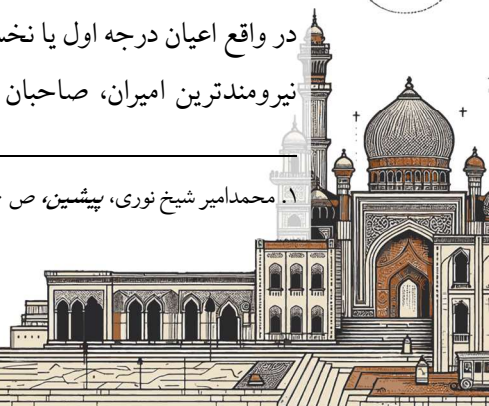 در واقع اعیان درجه اول یا
نیرومندترین امیران، صاحبان
۱. محمدامیر شیخ نوری، پیشین، ص